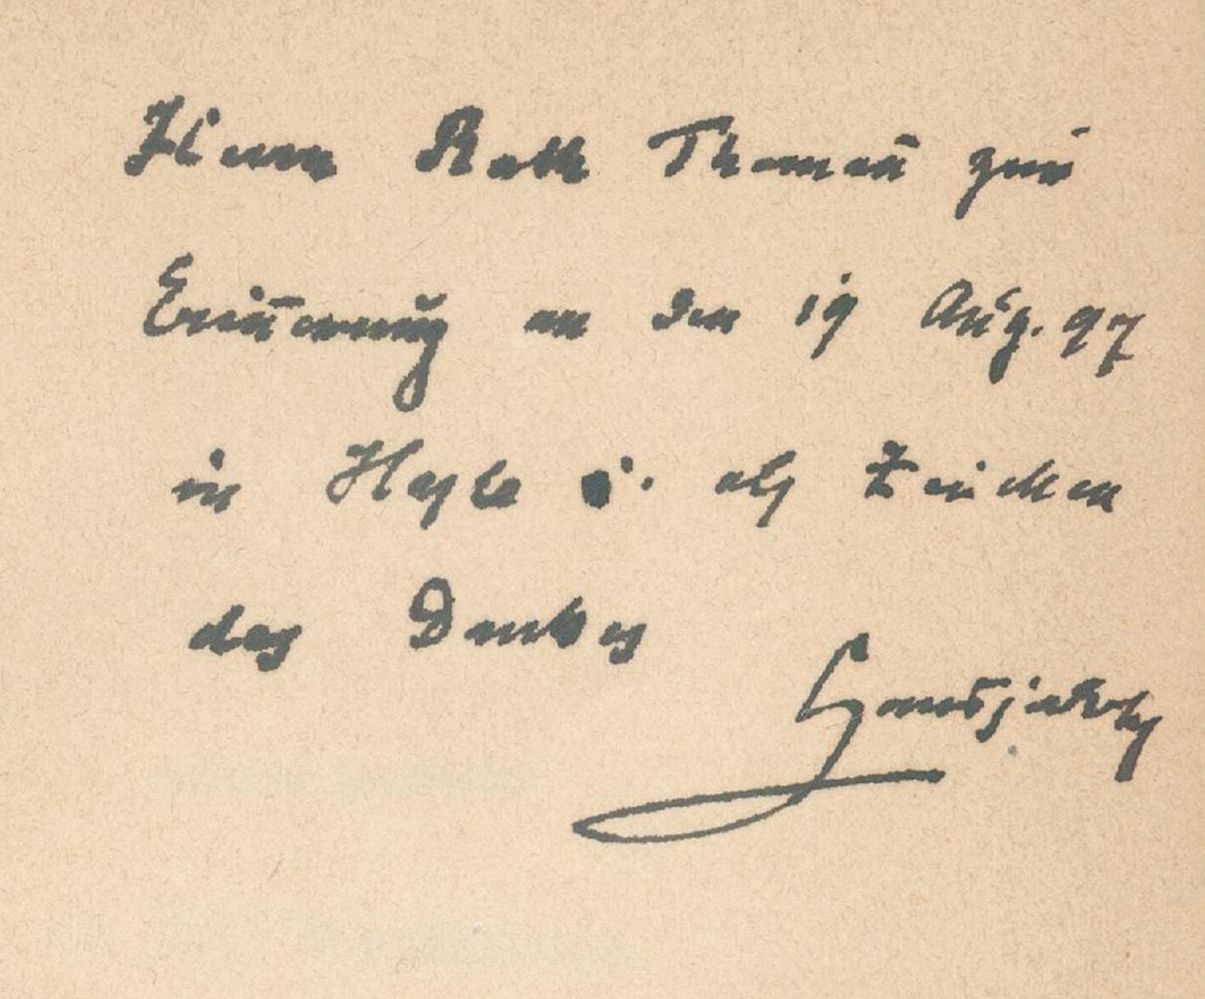 Herrn Rath Thoman̄ zur
Erin̄erung an den 19 Aug. 97
in Hasle als Zeichen
des Dankes
Hansjakob